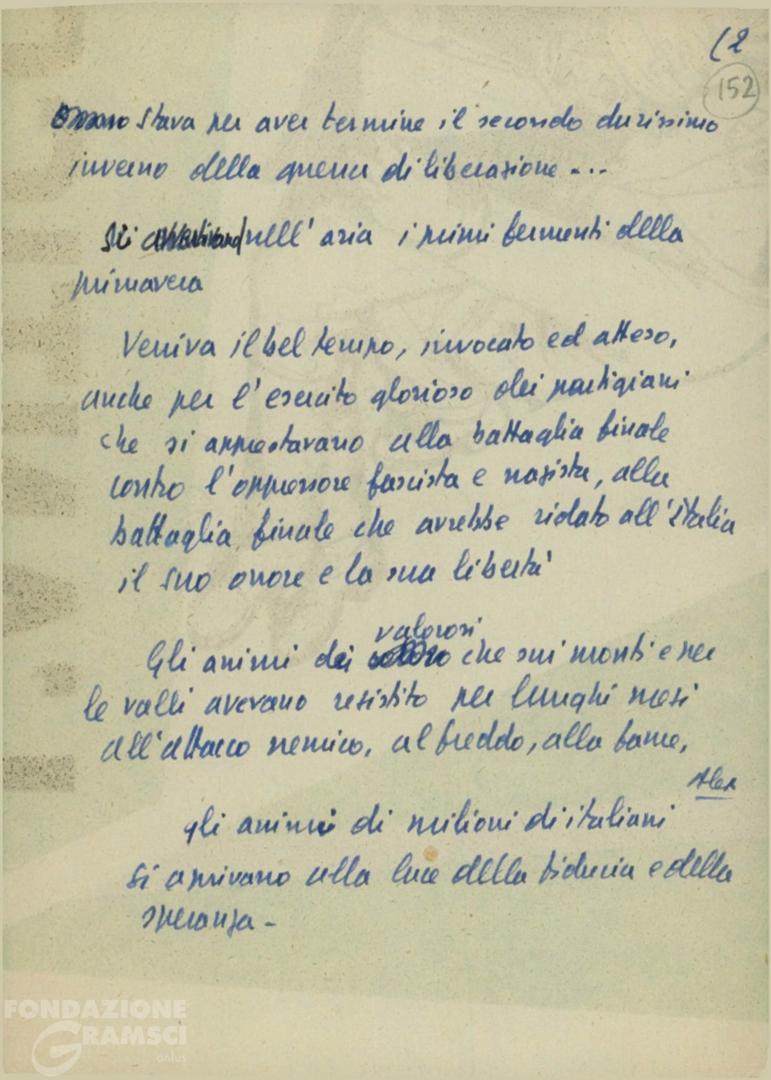 (2
152
Stava per aver termine il secondo durissimo
inverno della guerra di liberazione...
Si avvertivano nell'aria i primi fermenti della
primavera
Veniva il bel tempo, invocato ed atteso,
anche per l'esercito glorioso dei partigiani
che si apprestavano alla battaglia finale
contro l'oppressore fascista e nazista, alla
battaglia finale che avrebbe ridato all'Italia
il suo onore e la sua libertà
valorosi
Gli animi dei che sui monti e per
le valli avevano resistito per lunghi mesi
all'attacco nemico, al freddo, alla fame,
Alex
gli animi di milioni di italiani
si aprivano alla luce della fiducia e della
speranza -
FONDAZIONE
GRAMSCI
onlus